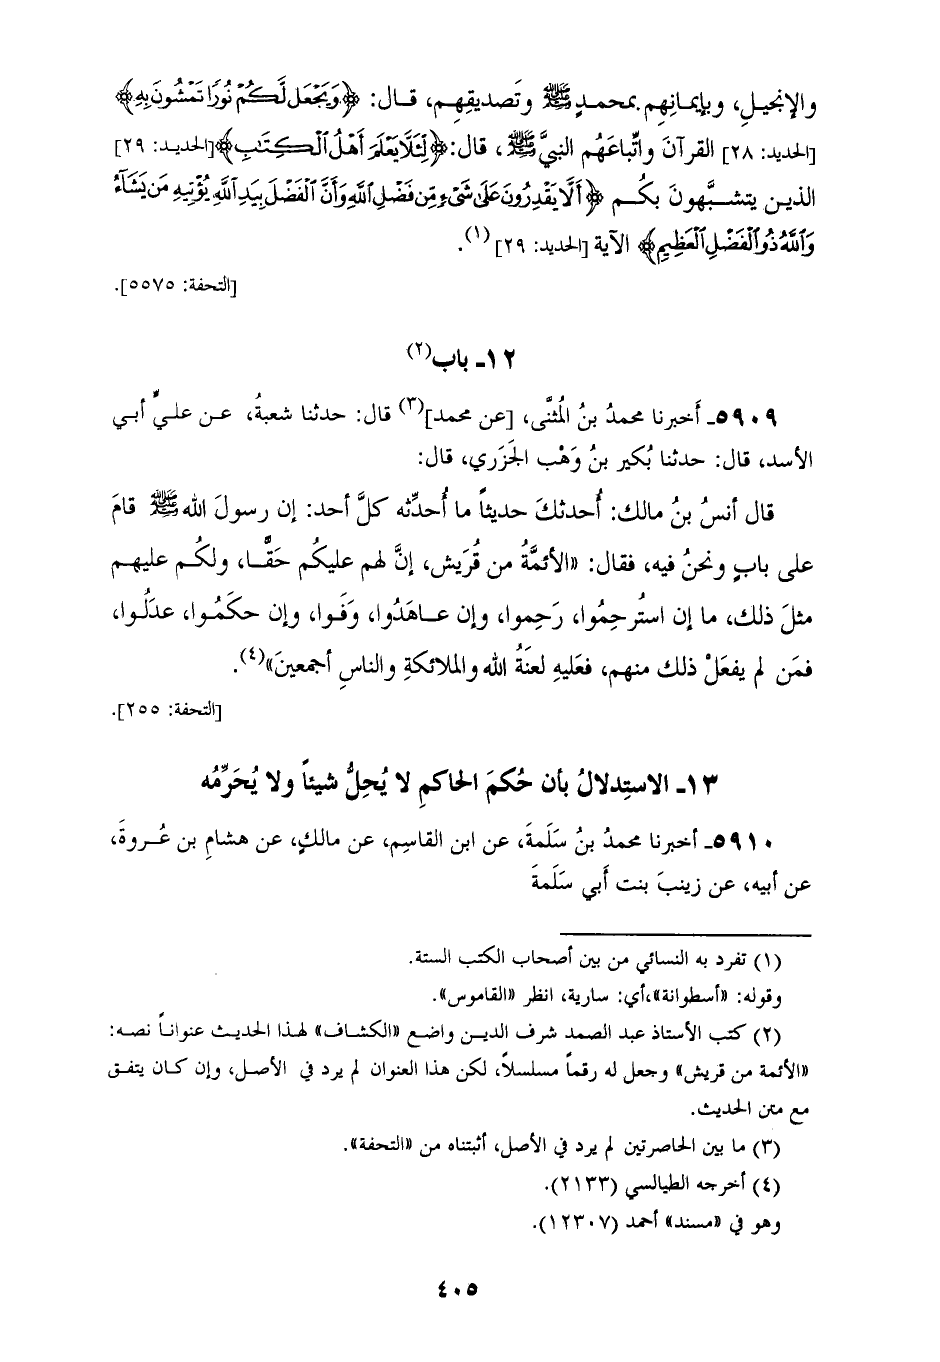 والإنجيلِ، وبإيمانِهم بمحمدٍ ﷺ وتَصديقِهِم، قال: ﴿وَيَجْعَل لَّكُمْ نُورًا تَمْشُونَ بِهِ﴾
[الحديد: ٢٨] القرآنَ واتِّباعَهُم النبيَّ ﷺ، قال: ﴿لِّئَلَّا يَعْلَمَ أَهْلُ الْكِتَابِ﴾ [الحديد: ٢٩]
الذين يتشبَّهونَ بكُم ﴿أَلَّا يَقْدِرُونَ عَلَىٰ شَيْءٍ مِّن فَضْلِ اللَّهِ وَأَنَّ الْفَضْلَ بِيَدِ اللَّهِ يُؤْتِيهِ مَن يَشَآءُ
وَاللَّهُ ذُو الْفَضْلِ الْعَظِيمِ﴾ الآية [الحديد: ٢٩](١).
[التحفة: ٥٥٧٥].
١٢ـ باب(٢)
٥٩٠٩ـ أَخبرنا محمدُ بنُ المُثنَّى، [عن محمد](٣) قال: حدثنا شعبةُ، عن عليٍّ أبي
الأسد، قال: حدثنا بُكير بنُ وَهْب الجَزَري، قال:
قال أنسُ بنُ مالك: أُحدثكَ حديثاً ما أُحدِّثه كلَّ أحد: إن رسولَ الله ﷺ قامَ
على بابٍ ونحنُ فيه، فقال: «الأئمَّةُ من قُرَيش، إنَّ لهم عليكُم حَقًّا، ولكُم عليهم
مثلَ ذلك، ما إن استُرحِمُوا، رَحِموا، وإن عاهَدُوا، وَفَوا، وإن حكَمُوا، عدَلُوا،
فمَن لم يفعَلْ ذلك منهم، فعَليهِ لعنَةُ الله والملائكةِ والناسِ أجمعينَ»(٤).
[التحفة: ٢٥٥].
١٣ـ الاستِدلالُ بأن حُكمَ الحاكمِ لا يُحِلُّ شيئاً ولا يُحَرِّمُه
٥٩١٠ـ أخبرنا محمدُ بنُ سَلَمةَ، عن ابن القاسِم، عن مالكٍ، عن هشامِ بن عُروةَ،
عن أبيه، عن زينبَ بنت أَبي سَلَمةَ
(١) تفرد به النسائي من بين أصحاب الكتب الستة.
وقوله: «أسطوانة»،أي: سارية، انظر «القاموس».
(٢) كتب الأستاذ عبد الصمد شرف الدين واضع «الكشاف» لهذا الحديث عنواناً نصه:
«الأئمة من قريش» وجعل له رقماً مسلسلاً، لكن هذا العنوان لم يرد في الأصل، وإن كان يتفق
مع متن الحديث.
(٣) ما بين الحاصرتين لم يرد في الأصل، أثبتناه من «التحفة».
(٤) أخرجه الطيالسي (٢١٣٣).
وهو في «مسند» أحمد (١٢٣٠٧).
٤٠٥